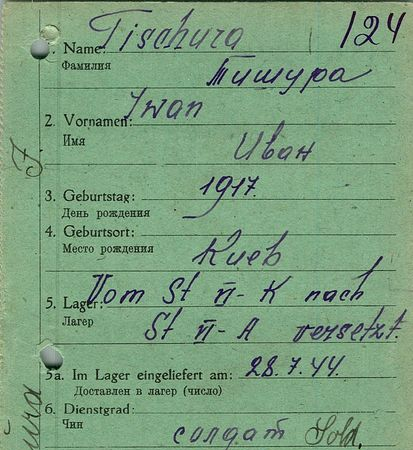 Tischura 124
1. Name:
Фамилия
Тишура
Iwan
2. Vornamen:
Имя
Иван
3. Geburtstag: 1917.
День рождения
4. Geburtsort:
Место рождения
Киев
Vom St VI-K nach
5. Lager:
Лагер
St VI-A versetzt.
5a. Im Lager eingeliefert am: 28.7.44.
Доставлен в лагер (число)
6. Dienstgrad:
Чин
солдат Sold.